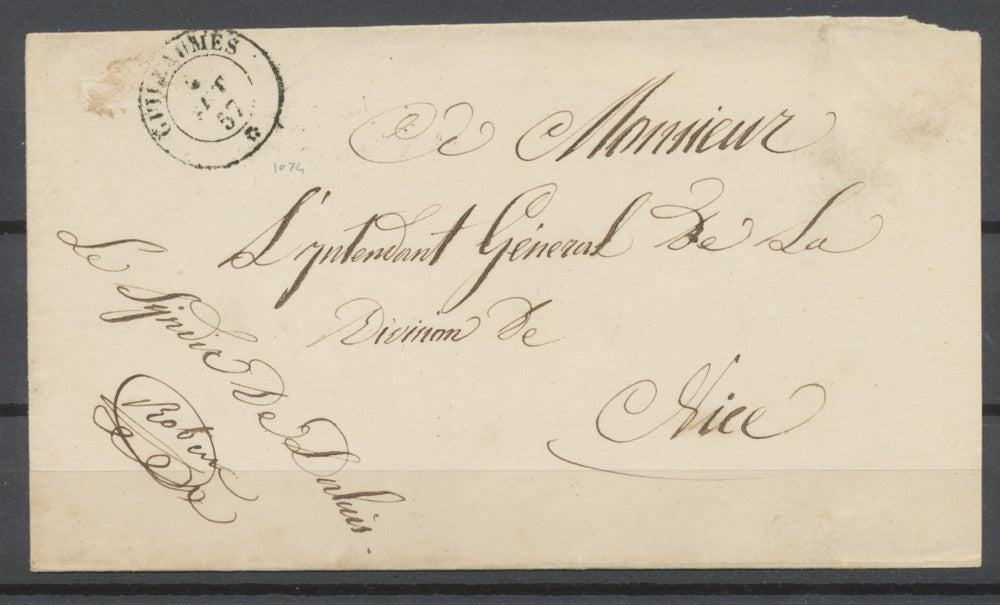 GUILLAUMES
57
1074
A Monsieur
L'Intendant Géneral De La
Division De
Nice
Le Syndic De Daluis.
Robert